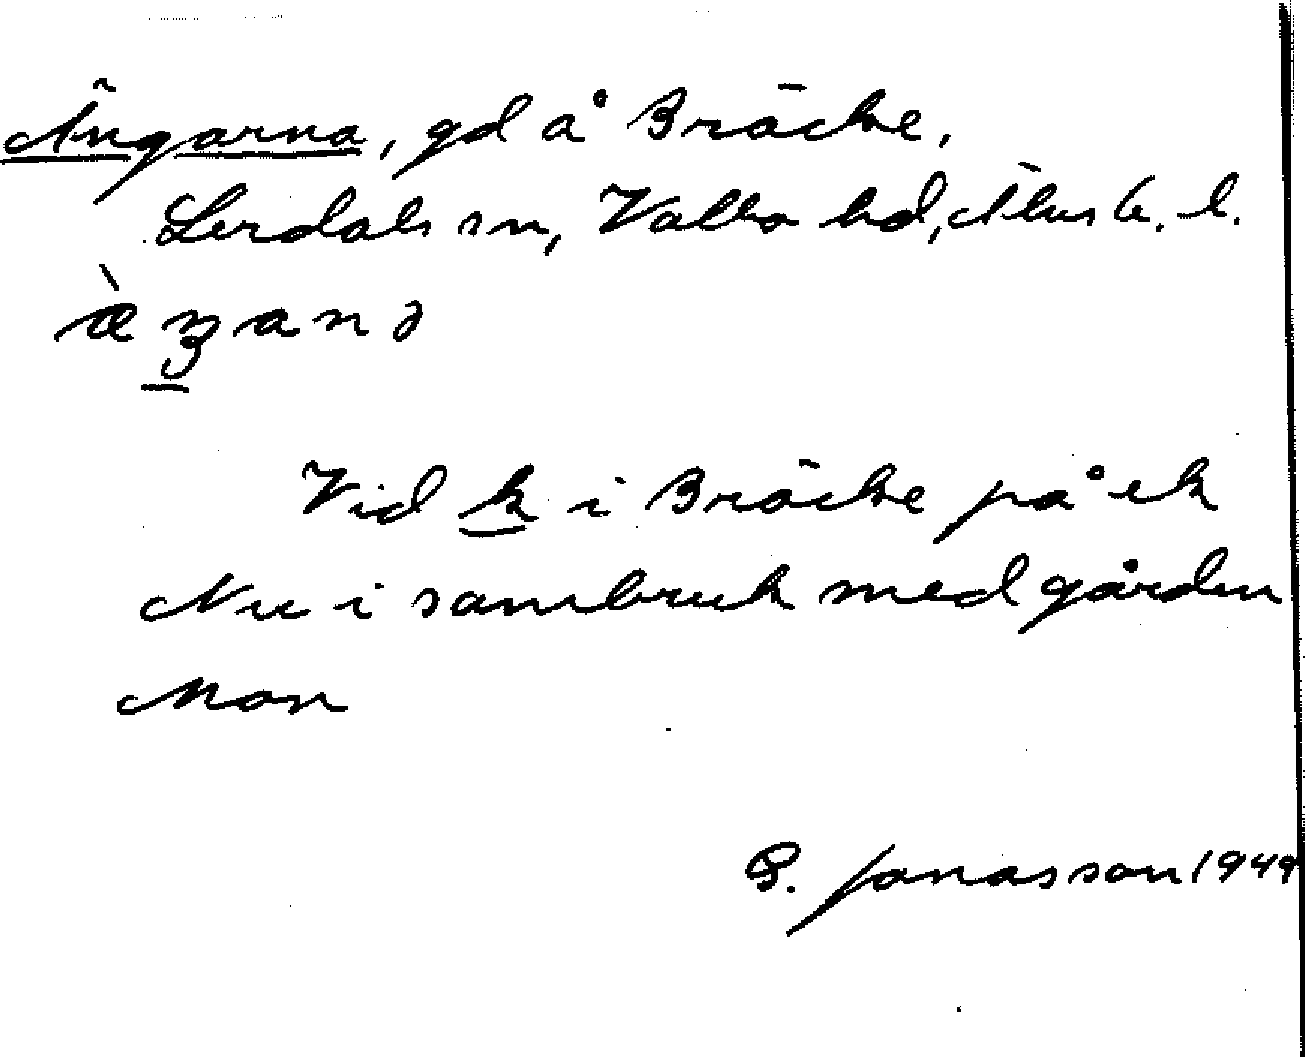 Ängarna, gd å Bräcke,
Lerdals sn, Valbo hd, Älvsb. l.
Vid k i Bräcke på ek
Nu i sambruk med gården
Mon
B. Jonasson 1949